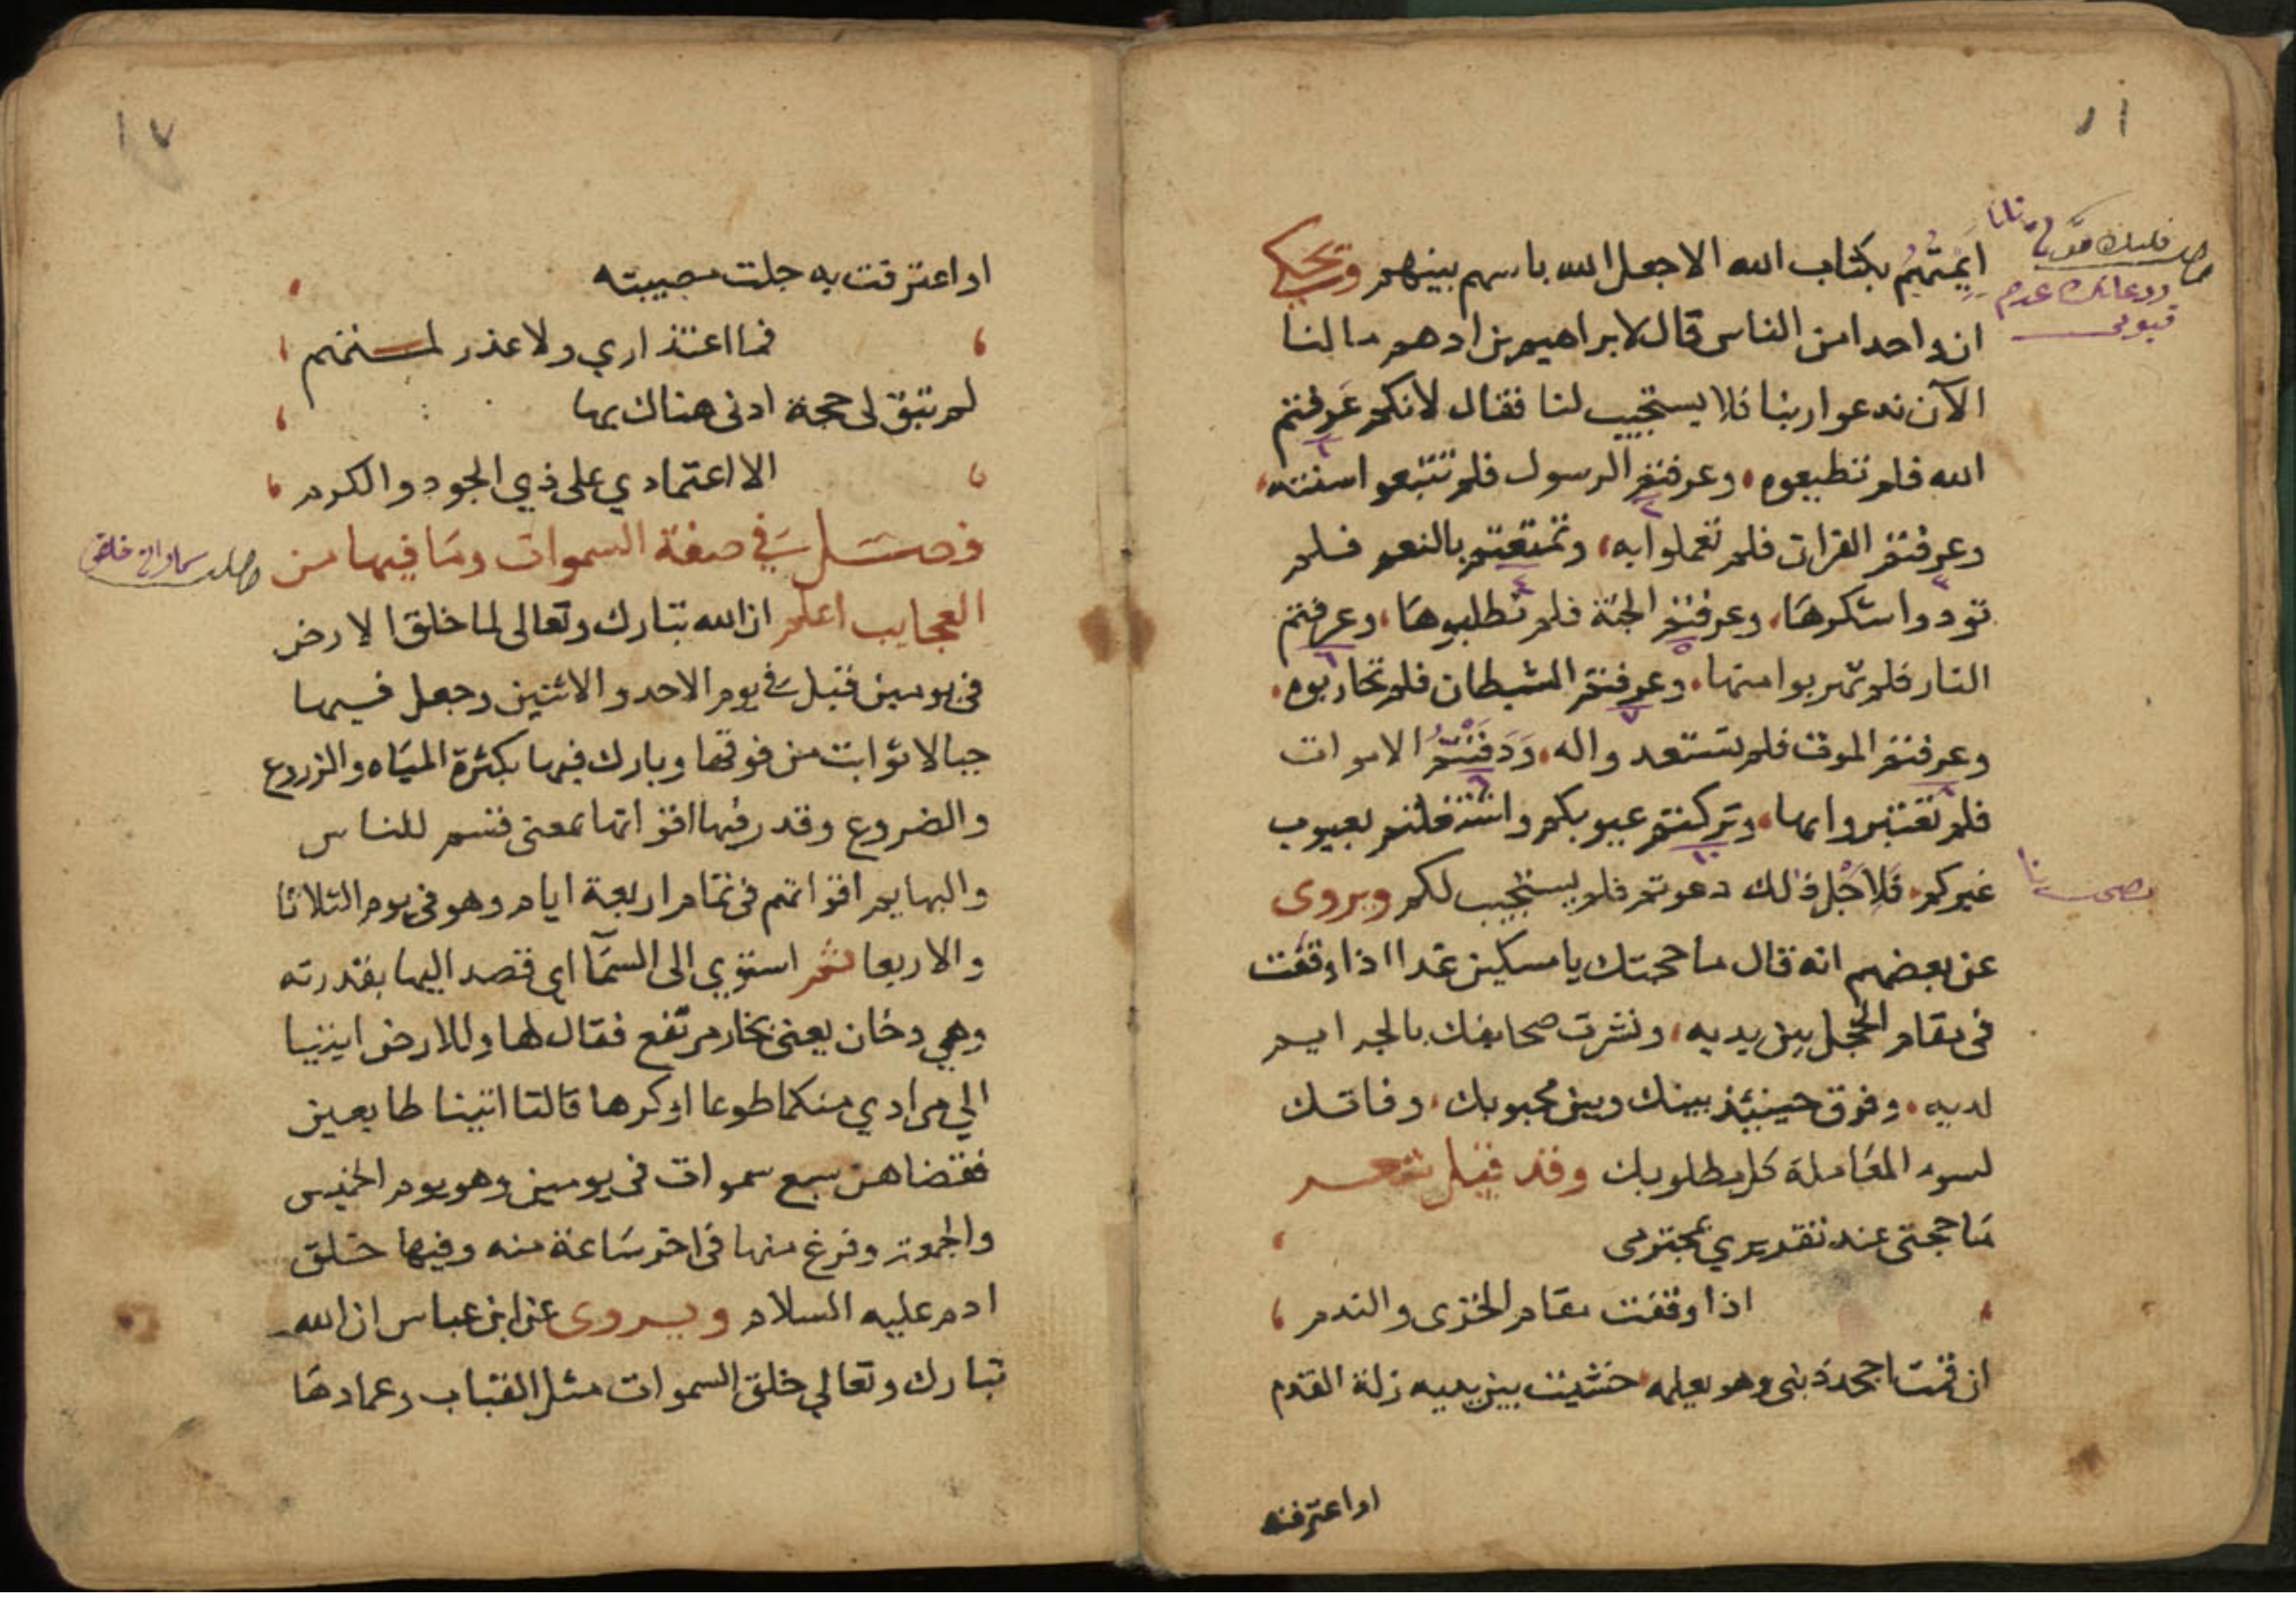 ايمتهم بكتاب الله الا جعل الله باسهم بينهم ويحكى
ان واحدا من الناس قال لابراهيم بن ادهم ما لنا
الآن ندعوا ربنا فلا يستجيب لنا فقال لانكم عرفتم
الله فلم تطيعوه وعرفتم الرسول فلم تتبعوا سنته
وعرفتم القران فلم تعملوا به وتمتعتم بالنعم فلم
تودوا شكرها وعرفتم الجنة فلم تطلبوها وعرفتم
النار فلم تهربوا منها وعرفتم الشيطان فلم تحاربوه
وعرفتم الموت فلم تستعدوا له ودفنتم الاموات
فلم تعتبروا بها وتركتم عيوبكم واشتغلتم بعيوب
غيركم فلاجل ذلك دعوتم فلم يستجيب لكم ويروى
عن بعضهم انه قال ما حجتك يا مسكين غدا اذا وقفت
فى مقام الخجل بين يديه ونشرت صحايفك بالجرايم
لديه وفرق حينئذ بينك وبين محبوبك وفاتك
لسوء المعاملة كل مطلوبك وقد قيل شعر
ما حجتى عند تقديري بمجترمى
اذا وقفت مقام الخزى والندم
ان قمت اجحد ذنبى وهو يعلمه خشيت بين يديه زلة القدم
او اعترفت
١٧
او اعترفت به جلت مصيبته
فما اعتذاري ولا عذر لمنتهم
لم تبق لى حجة ادنى هناك بها
الا اعتمادي على ذي الجود والكرم
فصل في صفة السموات وما فيها من
العجايب اعلم ان الله تبارك وتعالى لما خلق الارض
فى يومين قبل في يوم الاحد والاثنين وجعل فيها
جبالا ثوابت من فوقها وبارك فيها بكثرة المياه والزروع
والضروع وقدر فيها اقواتها بمعنى قسم للناس
والبهايم اقواتهم فى تمام اربعة ايام وهو فى يوم الثلاثا
والاربعا ثم استوي الى السمآ اى قصد اليها بقدرته
وهي دخان يعنى بخار مرتفع فقال لها وللارض ايتيا
الي مرادي منكما طوعا او كرها قالتا اتينا طايعين
فقضاهن سبع سموات فى يومين وهو يوم الخميس
والجمعة وفرغ منها فى اخر ساعة منه وفيها خلق
ادم عليه السلام ويروى عن ابن عباس ان الله
تبارك وتعالي خلق السموات مثل القباب وعمادها